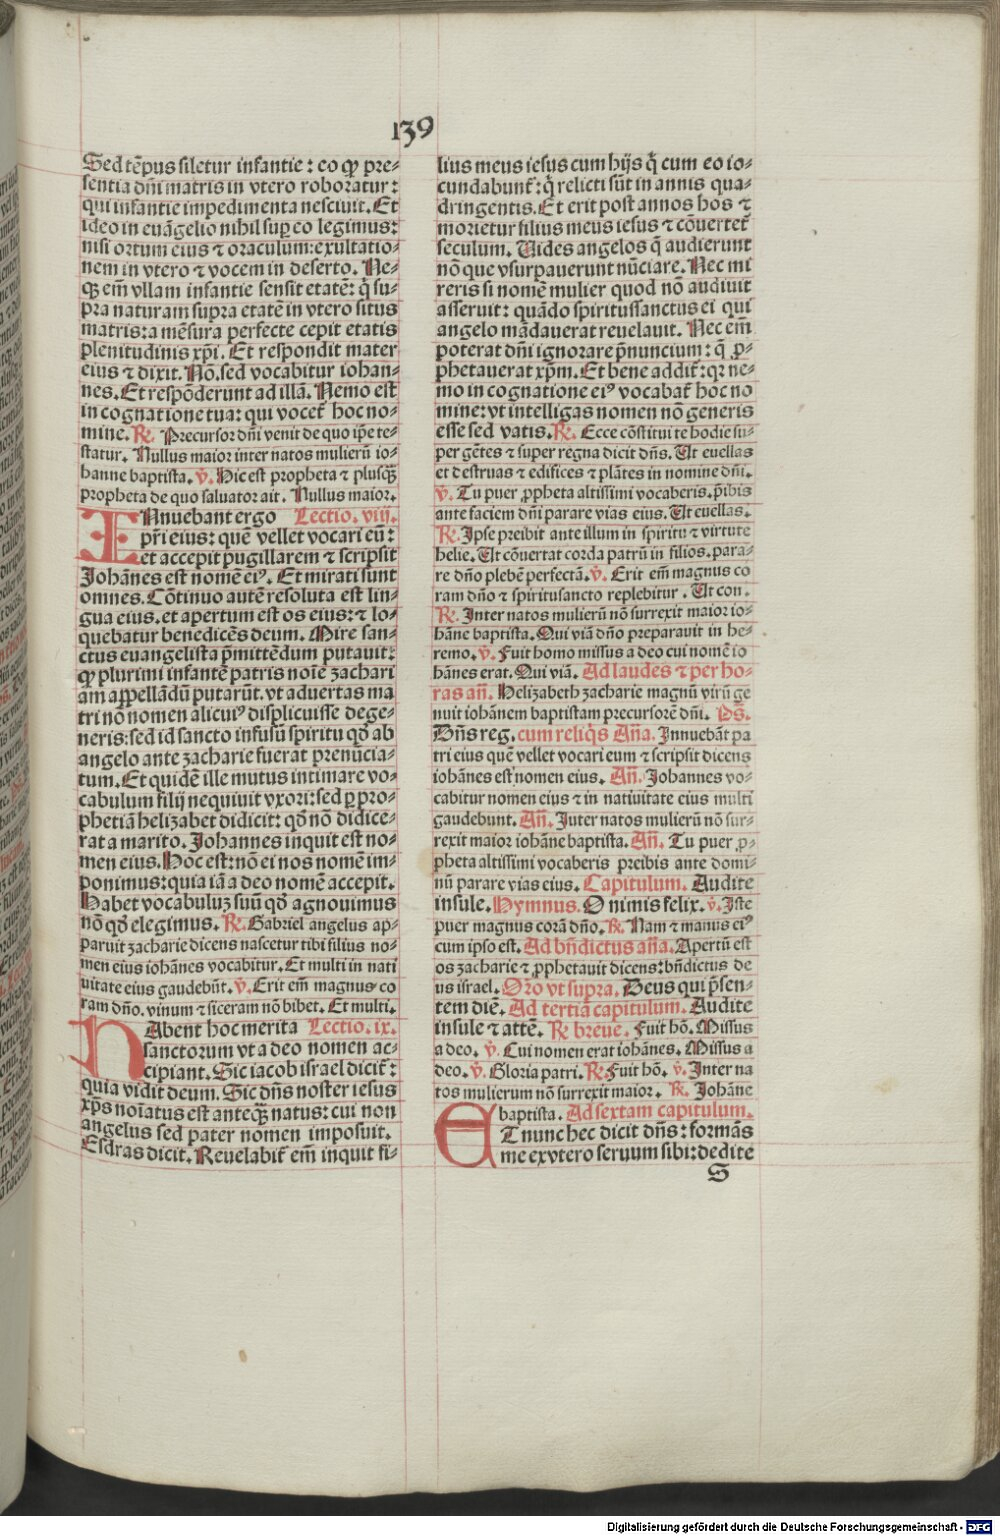 139
Sed tēpus siletur infantie: eo ꝙ pre-
sentia dn̄i matris in vtero roboratur:
qui infantie impedimenta nesciuit. Et
ideo in euāgelio nihil suꝑ eo legimus:
nisi ortum eius ⁊ oraculum: exultatio-
nem in vtero ⁊ vocem in deserto. Ne-
qꝫ em̄ vllam infantie sensit etatē: q̄ su-
pra naturam supra etatē in vtero situs
matris: a mēsura perfecte cepit etatis
plenitudinis xp̄i. Et respondit mater
eius ⁊ dixit. Nō. sed vocabitur iohan-
nes. Et respōderunt ad illā. Nemo est
in cognatione tua: qui vocet̄ hoc no-
mine. R̄. Precursor dn̄i venit de quo ip̄e te-
statur. Nullus maior inter natos mulierū io-
hanne baptista. v̄. Hic est propheta ⁊ plusqꝫ
propheta de quo saluator ait. Nullus maior.
INnuebant ergo Lectio. viij.
pr̄i eius: quē vellet vocari eū:
et accepit pugillarem ⁊ scripsit
Johānes est nomē eiꝰ. Et mirati sunt
omnes. Cōtinuo autē resoluta est lin-
gua eius. et apertum est os eius: ⁊ lo-
quebatur benedicēs deum. Mire san-
ctus euangelista p̄mittēdum putauit:
ꝙ plurimi infantē patris noīe zachari
am appellādū putarūt. vt aduertas ma
tri nō nomen alicuiꝰ displicuisse dege-
neris: sed id sancto infusū spiritu qd̄ ab
angelo ante zacharie fuerat prenūcia-
tum. Et quidē ille mutus intimare vo-
cabulum filij nequiuit vxori: sed ꝑ pro-
phetiā helizabet didicit: qd̄ nō didice-
rat a marito. Johannes inquit est no-
men eius. Hoc est: nō ei nos nomē im-
ponimus: quia iā a deo nomē accepit.
Habet vocabuluz suū qd̄ agnouimus
nō qd̄ elegimus. R̄. Gabriel angelus ap-
paruit zacharie dicens nascetur tibi filius no-
men eius iohānes vocabitur. Et multi in nati
uitate eius gaudebūt. v̄. Erit em̄ magnus co
ram dn̄o. vinum ⁊ siceram nō bibet. Et multi.
HAbent hoc merita Lectio. ix.
sanctorum vt a deo nomen ac-
cipiant. Sic iacob israel dicit̄:
quia vidit deum. Sic dn̄s noster iesus
xp̄s noīatus est anteqꝫ natus: cui non
angelus sed pater nomen imposuit.
Esdras dicit. Reuelabit̄ em̄ inquit fi-
lius meus iesus cum hijs q̄ cum eo io-
cundabunt̄: q̄ relicti sūt in annis qua-
dringentis. Et erit post annos hos ⁊
morietur filius meus iesus ⁊ cōuertet̄
seculum. Uides angelos q̄ audierunt
nō que vsurpauerunt nūciare. Nec mi
reris si nomē mulier quod nō audiuit
asseruit: quādo spiritussanctus ei qui
angelo mādauerat reuelauit. Nec em̄
poterat dn̄i ignorare p̄nuncium: q̄ ꝓ-
phetauerat xp̄m. Et bene addit̄: qꝛ ne-
mo in cognatione eiꝰ vocabat̄ hoc no
mine: vt intelligas nomen nō generis
esse sed vatis. R̄. Ecce cōstitui te hodie su-
per gētes ⁊ super regna dicit dn̄s. Ut euellas
et destruas ⁊ edifices ⁊ plātes in nomine dn̄i.
v̄. Tu puer ꝓpheta altissimi vocaberis. p̄ibis
ante faciem dn̄i parare vias eius. Ut euellas.
R̄. Ipse preibit ante illum in spiritu ⁊ virtute
helie. Ut cōuertat corda patrū in filios. para-
re dn̄o plebē perfectā. v̄. Erit em̄ magnus co
ram dn̄o ⁊ spiritusancto replebitur. Ut con.
R̄. Inter natos mulierū nō surrexit maior io-
hāne baptista. Qui viā dn̄o preparauit in he-
remo. v̄. Fuit homo missus a deo cui nomē io
hānes erat. Qui viā. Ad laudes ⁊ per ho-
ras an̄. Helizabeth zacharie magnū virū ge
nuit iohānem baptistam precursorē dn̄i. Ps̄.
Dn̄s reg. cum reliq̄s An̄a. Innuebāt pa
tri eius quē vellet vocari eum ⁊ scripsit dicens
iohānes est nomen eius. An̄. Johannes vo-
cabitur nomen eius ⁊ in natiuitate eius multi
gaudebunt. An̄. Inter natos mulierū nō sur-
rexit maior iohāne baptista. An̄. Tu puer ꝓ-
pheta altissimi vocaberis preibis ante domi-
nū parare vias eius. Capitulum. Audite
insule. Hymnus. O nimis felix. v̄. Iste
puer magnus corā dn̄o. R̄. Nam ⁊ manus eiꝰ
cum ipso est. Ad bn̄dictus an̄a. Apertū est
os zacharie ⁊ ꝓphetauit dicens: bn̄dictus de
us israel. Oro vt supra. Deus qui p̄sen-
tem diē. Ad tertiā capitulum. Audite
insule ⁊ attē. R̄ breue. Fuit hō. Missus
a deo. v̄. Cui nomen erat iohānes. Missus a
deo. v̄. Gloria patri. R̄. Fuit hō. v̄. Inter na
tos mulierum nō surrexit maior. R̄. Johāne
baptista. Ad sextam capitulum.
ET nunc hec dicit dn̄s: formās
me ex vtero seruum sibi: dedite
S
Digitalisierung gefördert durch die Deutsche Forschungsgemeinschaft - DFG